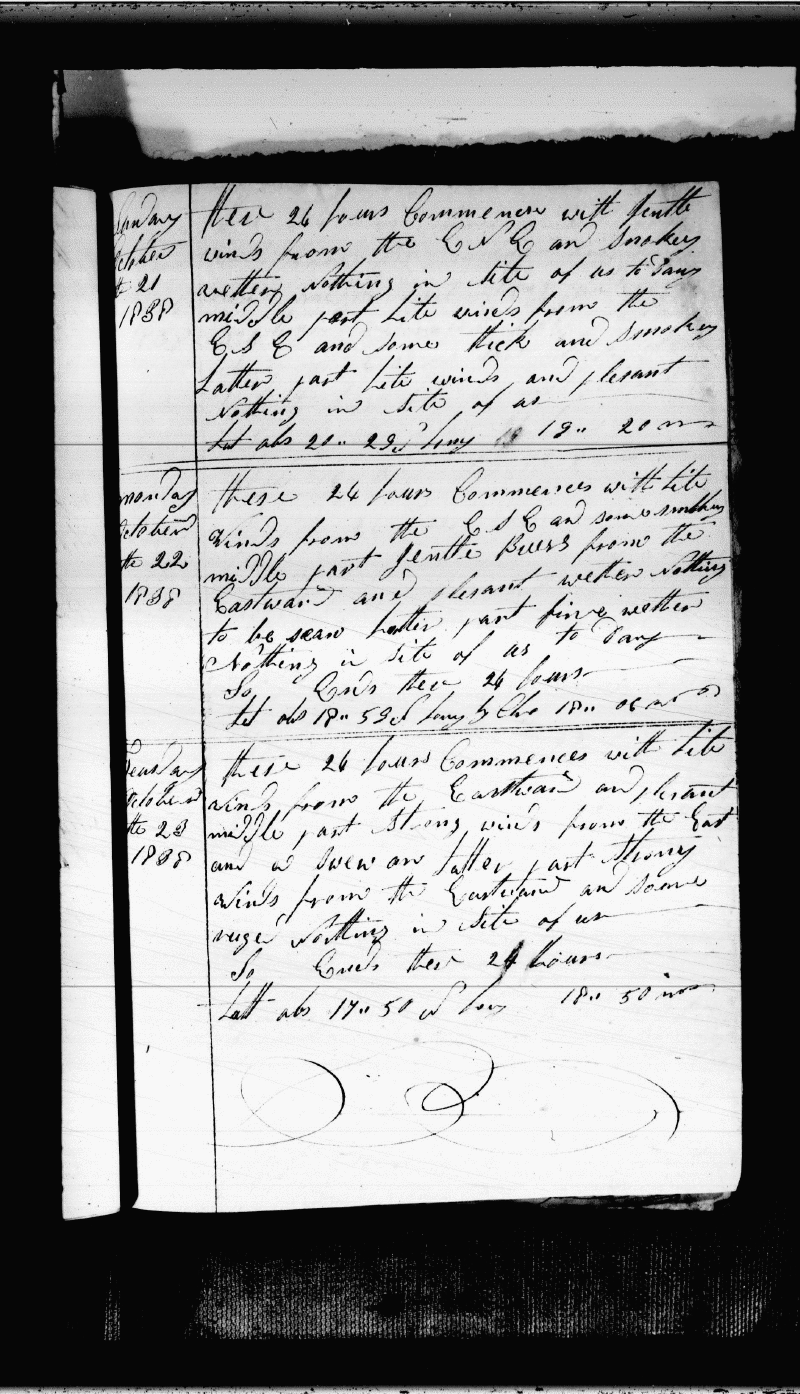 Sunday
October
the 21
1838
these 24 hours Commences with Jentle
winds from the E N E and Smokey
wetter Nothing in Site of us to Day
middle part Lite winds from the
E S E and Some thick and Smokey
Latter part Lite winds and plesant
Nothing in Site of us
Lat obs 20" 29 S Long 19" 20
monday
October
the 22
1838
these 24 hours Commences with Lite
winds from the E S E and some smokey
middle part Jentle Breses from the
Eastward and plesant wetter Nothing
to be sean Latter part fine wetter
Nothing in Site of us to Day
So Ends these 24 hours
Lat obs 18" 59 S Long by Chr 18" 06
Teusday
October
the 23
1838
these 24 hours Commences with Lite
winds from the Eastward and plesant
middle part Strong winds from the East
and a Swew on Latter part Strong
winds from the Eastward and Some
ruged Nothing in Site of us
So Ends these 24 hours
Latt obs 17" 50 S Long 18" 50